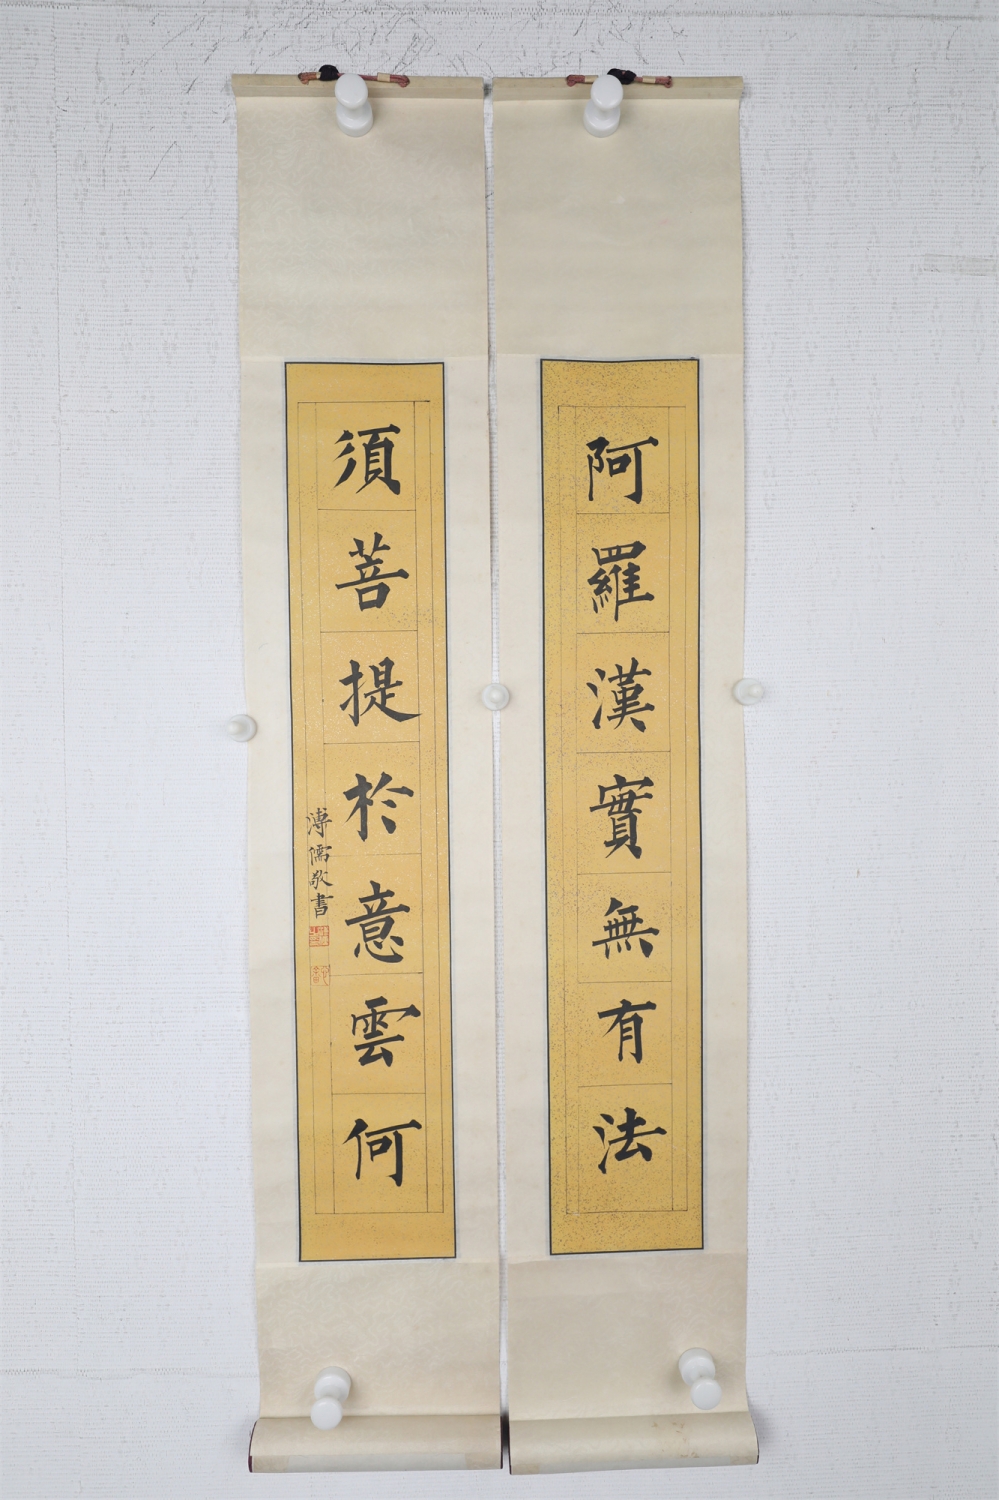 阿羅漢實無有法
須菩提於意雲何
溥儒敬書